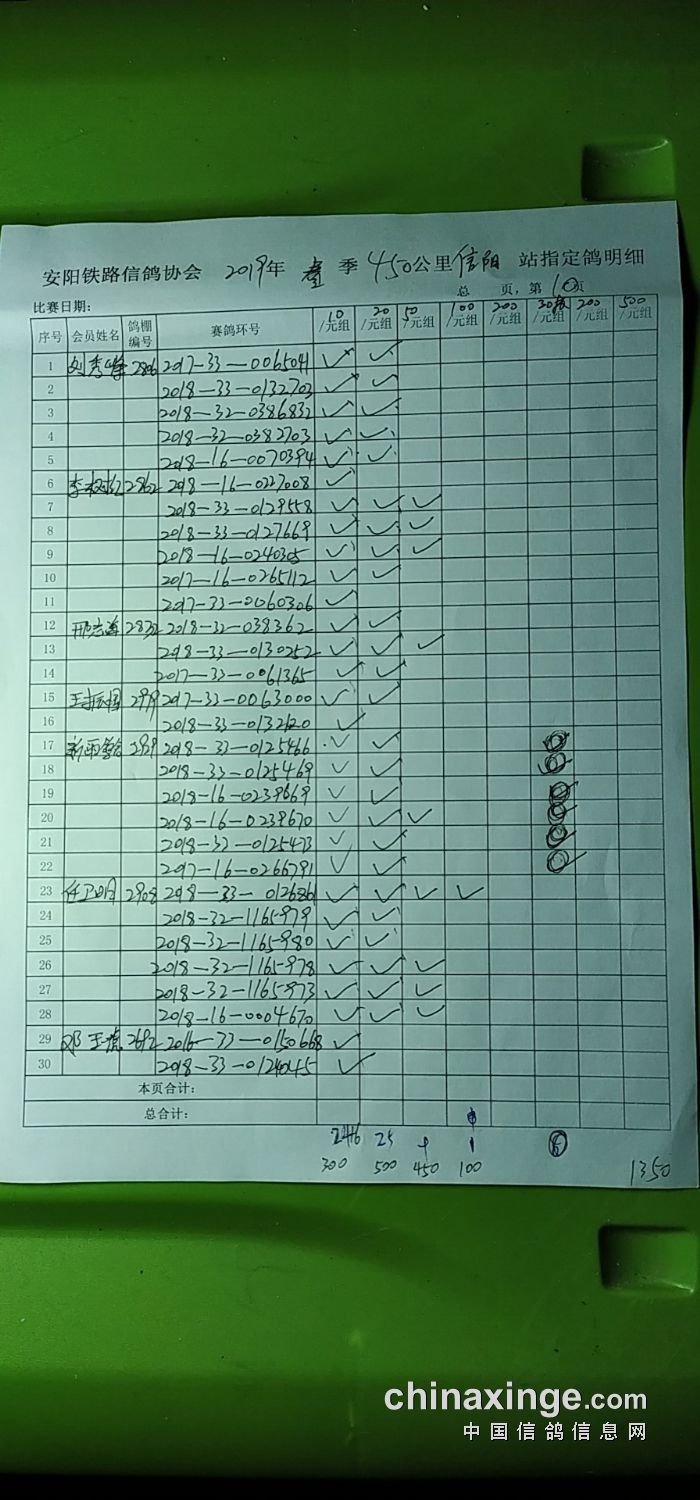 安阳铁路信鸽协会 2019年 春 季 450公里信阳 站指定鸽明细
比赛日期: 总 页，第10页
序号 会员姓名 鸽棚编号 赛鸽环号 10/元组 20/元组 50/元组 100/元组 200/元组 /元组 200/元组 500/元组
1 刘秀峰 2806 2017-33-0065041 ✓ ✓
2 2018-33-0132703 ✓ ✓
3 2018-32-0386832 ✓ ✓
4 2018-32-0382703 ✓ ✓
5 2018-16-0070394 ✓ ✓
6 2862 2018-16-0227008 ✓
7 2018-33-0129558 ✓ ✓ ✓
8 2018-33-0127669 ✓ ✓ ✓
9 2018-16-0240305 ✓ ✓ ✓
10 2017-16-0265112 ✓ ✓
11 2017-33-0060306 ✓
12 2832 2018-32-038362 ✓ ✓
13 2018-33-0130252 ✓ ✓ ✓
14 2017-33-0061365 ✓ ✓
15 王振国 2979 2017-33-0063000 ✓ ✓
16 2018-33- ✓
17 2939 2018-33-0125466 ✓ ✓
18 2018-33-0125469 ✓ ✓
19 2018-16-0239669 ✓ ✓
20 2018-16-0239670 ✓ ✓ ✓
21 2018-33-0125473 ✓ ✓
22 2017-16-0266791 ✓ ✓
23 任卫明 2908 2018-33-012686 ✓ ✓ ✓ ✓
24 2018-32-1165979 ✓ ✓
25 2018-32-1165980 ✓ ✓
26 2018-32-1165978 ✓ ✓ ✓
27 2018-32-1165973 ✓ ✓ ✓
28 2018-16-0004670 ✓ ✓ ✓
29 邓玉虎 2692 2016-33-0150668 ✓
30 2018-33- ✓
本页合计:
总合计:
25 1
300 500 450 100 1350
chinaxinge.com
中国信鸽信息网